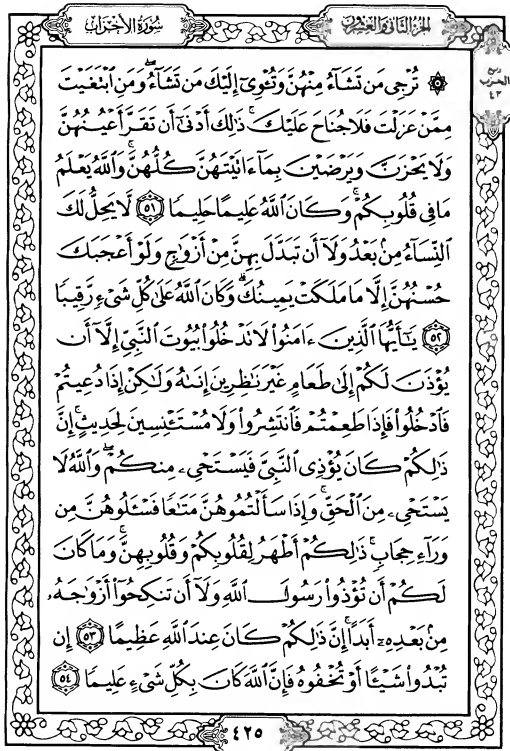 سُورَةُ الأَحْزَابِ
الجُزْءُ الثَّانِي وَالعِشْرُونَ
ربع
الحزب
٤٣
۞ تُرْجِي مَن تَشَآءُ مِنْهُنَّ وَتُـْٔوِىٓ إِلَيْكَ مَن تَشَآءُۖ وَمَنِ ٱبْتَغَيْتَ
مِمَّنْ عَزَلْتَ فَلَا جُنَاحَ عَلَيْكَۚ ذَٰلِكَ أَدْنَىٰٓ أَن تَقَرَّ أَعْيُنُهُنَّ
وَلَا يَحْزَنَّ وَيَرْضَيْنَ بِمَآ ءَاتَيْتَهُنَّ كُلُّهُنَّۚ وَٱللَّهُ يَعْلَمُ
مَا فِى قُلُوبِكُمْۚ وَكَانَ ٱللَّهُ عَلِيمًا حَلِيمًا ٥١ لَّا يَحِلُّ لَكَ
ٱلنِّسَآءُ مِنۢ بَعْدُ وَلَآ أَن تَبَدَّلَ بِهِنَّ مِنْ أَزْوَٰجٍ وَلَوْ أَعْجَبَكَ
حُسْنُهُنَّ إِلَّا مَا مَلَكَتْ يَمِينُكَۗ وَكَانَ ٱللَّهُ عَلَىٰ كُلِّ شَىْءٍ رَّقِيبًا
٥٢ يَٰٓأَيُّهَا ٱلَّذِينَ ءَامَنُوا۟ لَا تَدْخُلُوا۟ بُيُوتَ ٱلنَّبِىِّ إِلَّآ أَن
يُؤْذَنَ لَكُمْ إِلَىٰ طَعَامٍ غَيْرَ نَٰظِرِينَ إِنَىٰهُ وَلَٰكِنْ إِذَا دُعِيتُمْ
فَٱدْخُلُوا۟ فَإِذَا طَعِمْتُمْ فَٱنتَشِرُوا۟ وَلَا مُسْتَـْٔنِسِينَ لِحَدِيثٍۚ إِنَّ
ذَٰلِكُمْ كَانَ يُؤْذِى ٱلنَّبِىَّ فَيَسْتَحْىِۦ مِنكُمْۖ وَٱللَّهُ لَا
يَسْتَحْىِۦ مِنَ ٱلْحَقِّۚ وَإِذَا سَأَلْتُمُوهُنَّ مَتَٰعًا فَسْـَٔلُوهُنَّ مِن
وَرَآءِ حِجَابٍۚ ذَٰلِكُمْ أَطْهَرُ لِقُلُوبِكُمْ وَقُلُوبِهِنَّۚ وَمَا كَانَ
لَكُمْ أَن تُؤْذُوا۟ رَسُولَ ٱللَّهِ وَلَآ أَن تَنكِحُوٓا۟ أَزْوَٰجَهُۥ
مِنۢ بَعْدِهِۦٓ أَبَدًاۚ إِنَّ ذَٰلِكُمْ كَانَ عِندَ ٱللَّهِ عَظِيمًا ٥٣ إِن
تُبْدُوا۟ شَيْـًٔا أَوْ تُخْفُوهُ فَإِنَّ ٱللَّهَ كَانَ بِكُلِّ شَىْءٍ عَلِيمًا ٥٤
٤٢٥